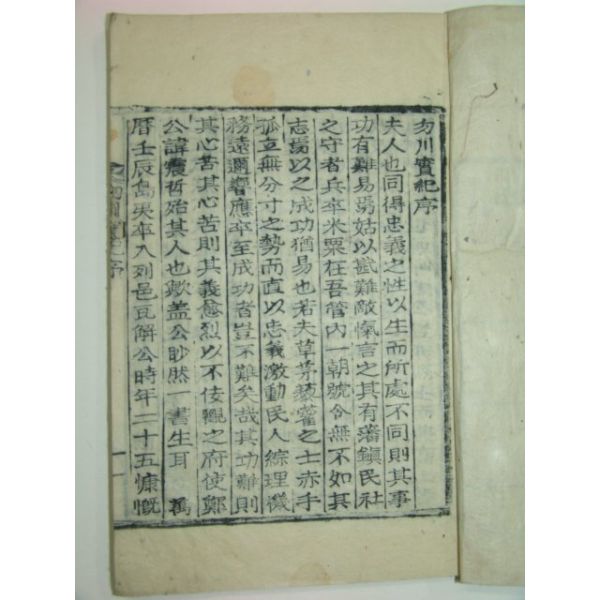 勿川實紀序
夫人也同得忠義之性以生而所處不同則其事
功有難易焉姑以戡難敵愾言之其有藩鎮民社
之守者兵卒米粟在吾管內一朝號令無不如其
志焉以之成功猶易也若夫草茅藜藿之士赤手
孤立無分寸之勢而直以忠義激動民人綜理機
務遠邇響應卒至成功者豈不難矣哉其功難則
其心苦其心苦則其義愈烈以不侫觀之府使鄭
公諱震哲殆其人也歟盖公眇然一書生耳 萬
曆壬辰島夷卒入列邑瓦解公時年二十五慷慨